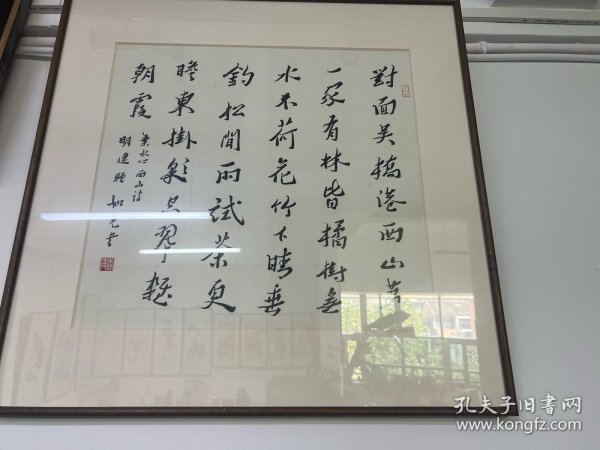 對面吳橋港西山苐
一家有林皆橘樹無
水不荷花竹下晴垂
釣松間雨試茶更
瞻東掛彩空翠雜
朝霞 葉水心西山詩
明達
孔夫子旧书网
www.kongfz.com